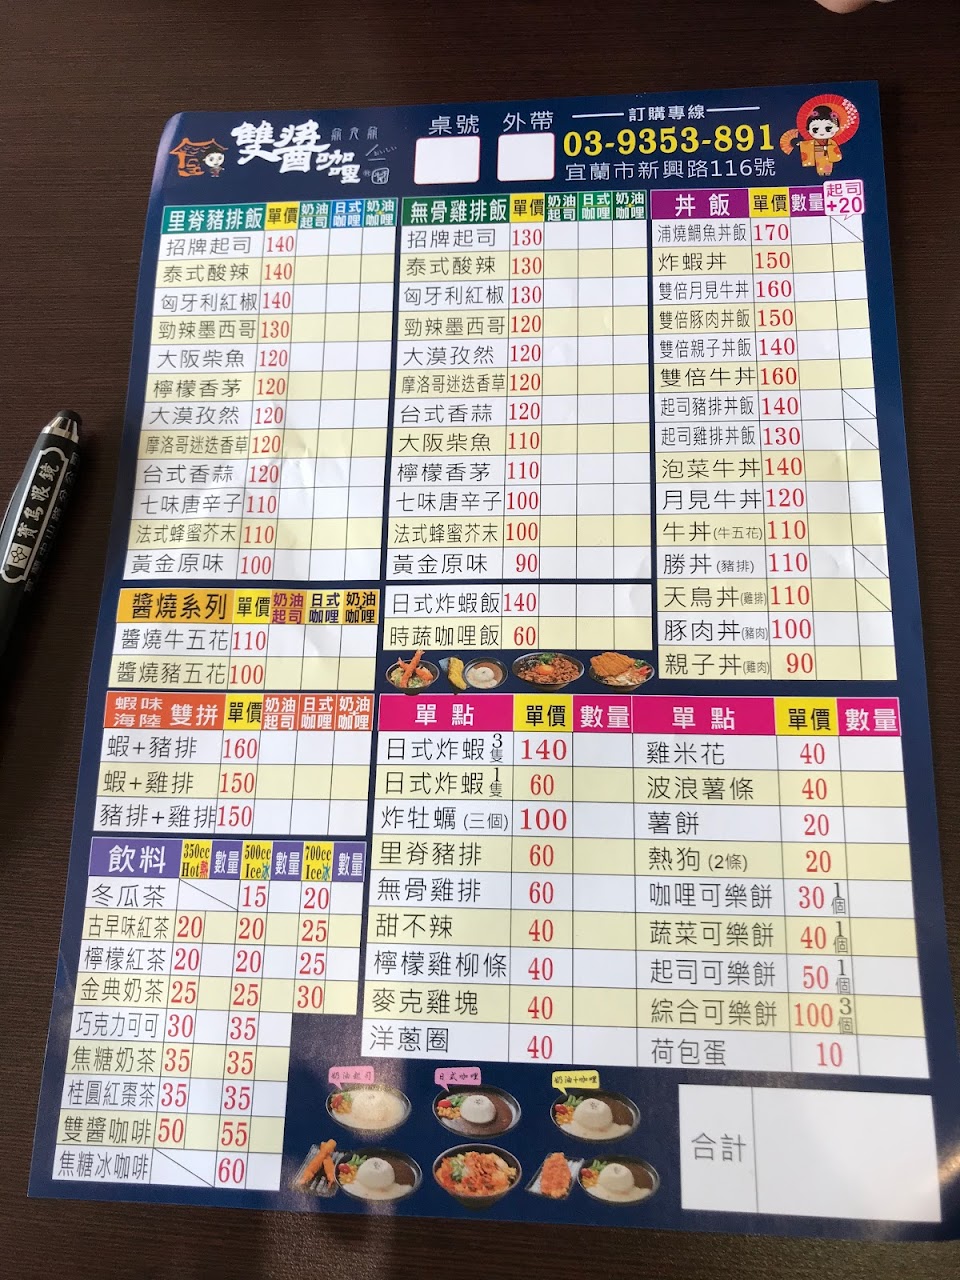 雙醬咖哩
桌號 外帶
訂購專線
03-9353-891
宜蘭市新興路116號
里脊豬排飯 單價 奶油起司 日式咖哩 奶油咖哩
招牌起司 140
泰式酸辣 140
匈牙利紅椒 140
勁辣墨西哥 130
大阪柴魚 120
檸檬香茅 120
大漠孜然 120
摩洛哥迷迭香草 120
台式香蒜 120
七味唐辛子 110
法式蜂蜜芥末 110
黃金原味 100
無骨雞排飯 單價 奶油起司 日式咖哩 奶油咖哩
招牌起司 130
泰式酸辣 130
匈牙利紅椒 130
勁辣墨西哥 120
大漠孜然 120
摩洛哥迷迭香草 120
台式香蒜 120
大阪柴魚 110
檸檬香茅 110
七味唐辛子 100
法式蜂蜜芥末 100
黃金原味 90
日式炸蝦飯 140
時蔬咖哩飯 60
丼飯 單價 數量 起司+20
浦燒鯛魚丼飯 170
炸蝦丼 150
雙倍月見牛丼 160
雙倍豚肉丼飯 150
雙倍親子丼飯 140
雙倍牛丼 160
起司豬排丼飯 140
起司雞排丼飯 130
泡菜牛丼 140
月見牛丼 120
牛丼(牛五花) 110
勝丼(豬排) 110
天鳥丼(雞排) 110
豚肉丼(豬肉) 100
親子丼(雞肉) 90
醬燒系列 單價 奶油起司 日式咖哩 奶油咖哩
醬燒牛五花 110
醬燒豬五花 100
蝦味海陸 雙拼 單價 奶油起司 日式咖哩 奶油咖哩
蝦+豬排 160
蝦+雞排 150
豬排+雞排 150
飲料 350cc Hot熱 數量 500cc Ice冰 數量 700cc Ice冰 數量
冬瓜茶 15 20
古早味紅茶 20 20 25
檸檬紅茶 20 20 25
金典奶茶 25 25 30
巧克力可可 30 35
焦糖奶茶 35 35
桂圓紅棗茶 35 35
雙醬咖啡 50 55
焦糖冰咖啡 60
單點 單價 數量
日式炸蝦3隻 140
日式炸蝦1隻 60
炸牡蠣(三個) 100
里脊豬排 60
無骨雞排 60
甜不辣 40
檸檬雞柳條 40
麥克雞塊 40
洋蔥圈 40
單點 單價 數量
雞米花 40
波浪薯條 40
薯餅 20
熱狗(2條) 20
咖哩可樂餅 30 1個
蔬菜可樂餅 40 1個
起司可樂餅 50 1個
綜合可樂餅 100 3個
荷包蛋 10
奶油起司 日式咖哩 奶油+咖哩
合計
寶島眼鏡